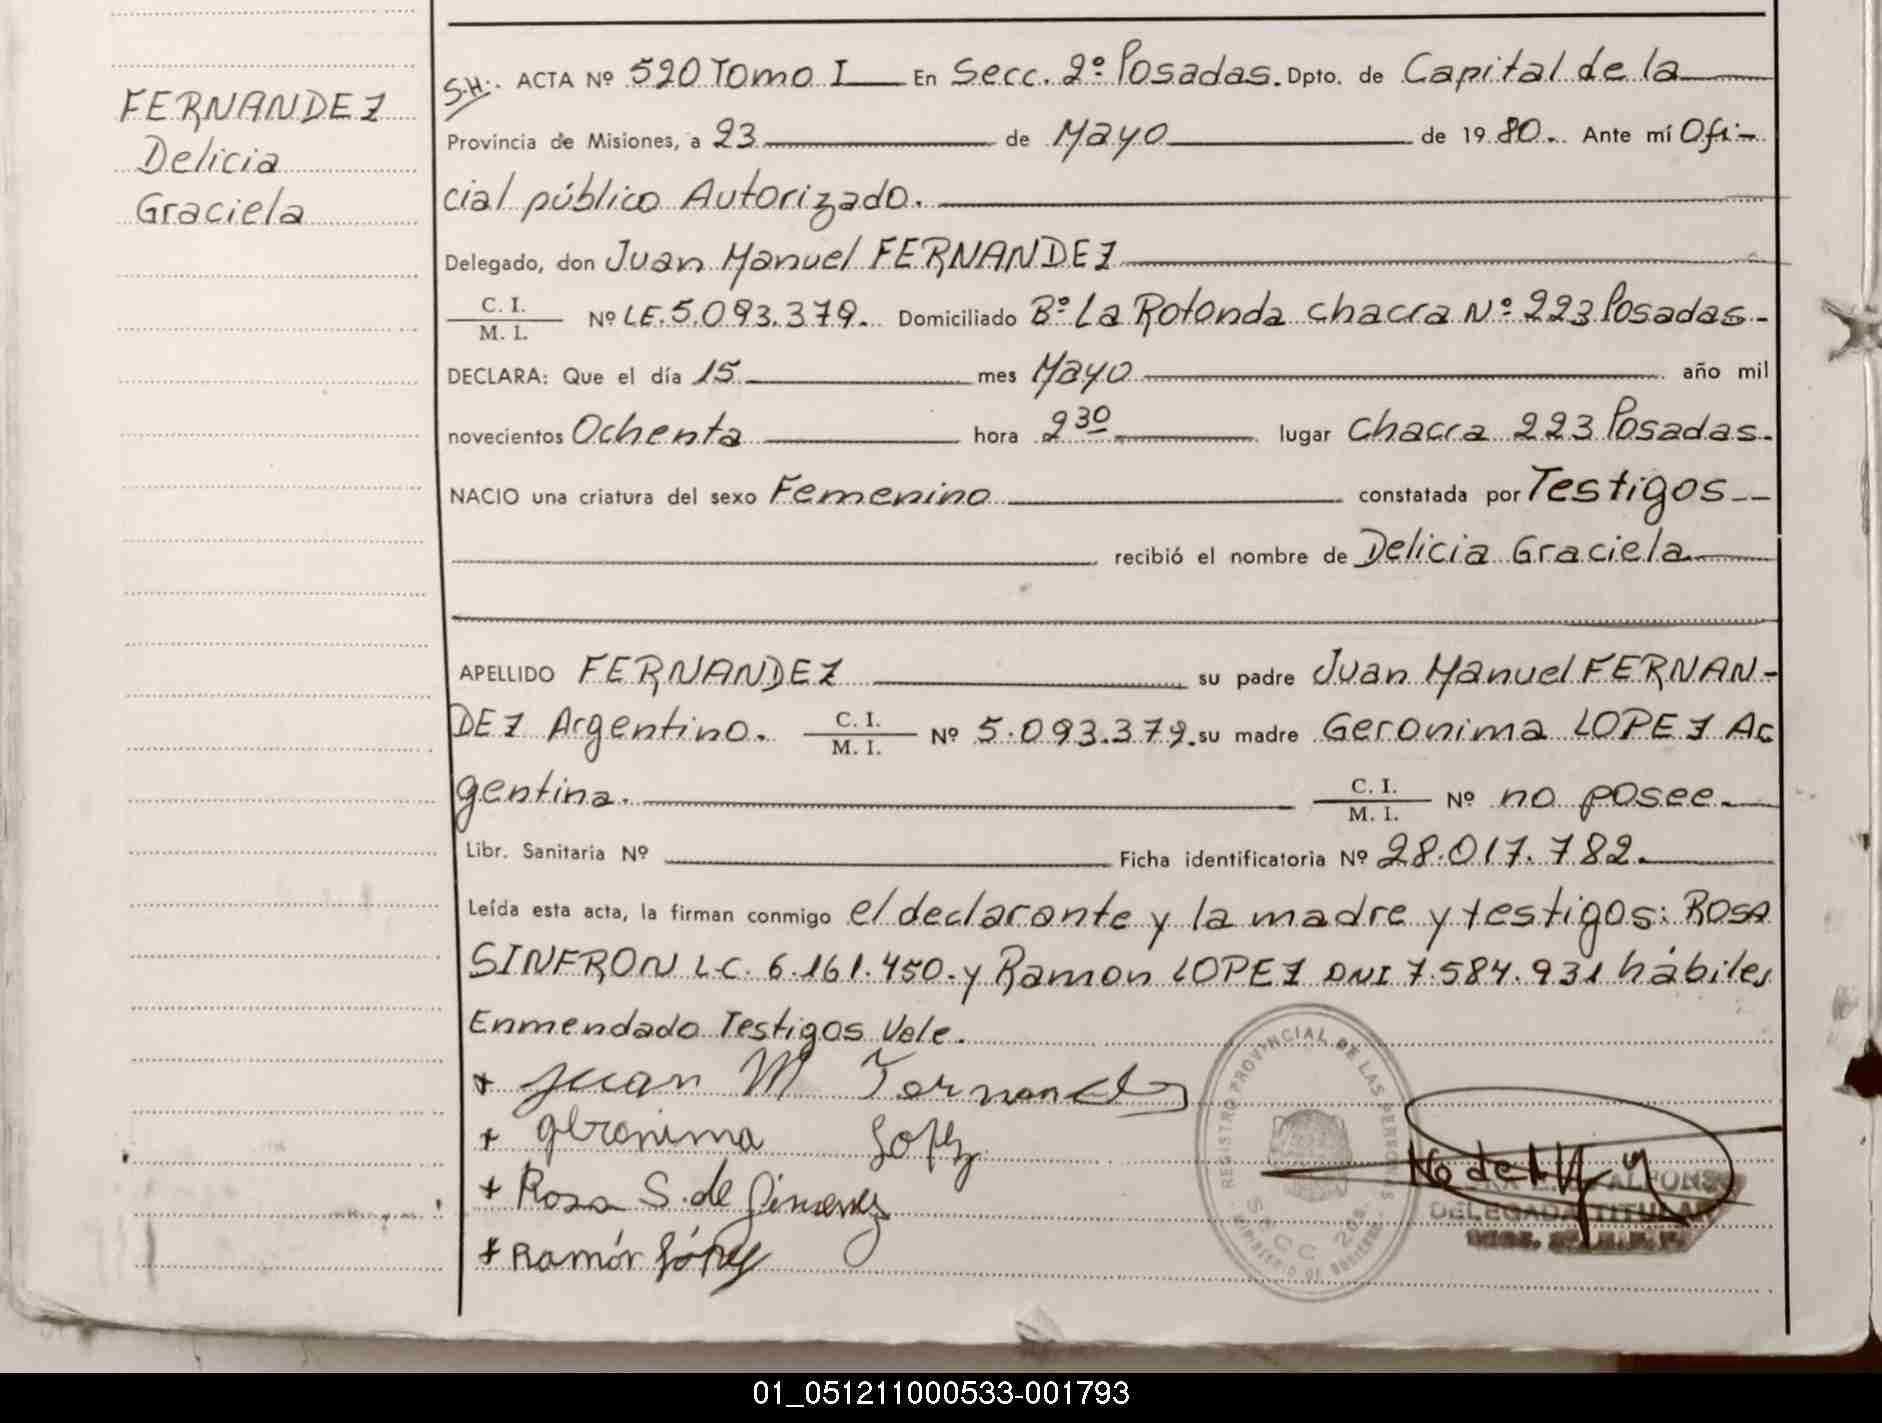 FERNANDEZ
Delicia
Graciela
S.H. ACTA Nº 520 Tomo I En Secc. 2º Posadas. Dpto. de Capital de la
Provincia de Misiones, a 23 de Mayo de 1980. Ante mí Ofi-
cial público Autorizado.
Delegado, don Juan Manuel FERNANDEZ
C. I.
M. I. Nº LE. 5.093.379. Domiciliado Bº La Rotonda chacra Nº 223 Posadas-
DECLARA: Que el día 15 mes Mayo año mil
novecientos Ochenta hora 2 30 lugar Chacra 223 Posadas.
NACIO una criatura del sexo Femenino constatada por Testigos--
recibió el nombre de Delicia Graciela
APELLIDO FERNANDEZ su padre Juan Manuel FERNAN-
DEZ Argentino. C. I.
M. I. Nº 5.093.379. su madre Geronima LOPEZ Ar
gentina. C. I.
M. I. Nº no posee.
Libr. Sanitaria Nº Ficha identificatoria Nº 28.017.782.
Leída esta acta, la firman conmigo el declarante y la madre y testigos: ROSA
SINFRON L.C. 6.161.450. y Ramon LOPEZ DNI 7.584.931 hábiles
Enmendado Testigos Vale.
+ Juan M Fernandez
+ geronima Lopez
+ Rosa S. de Jimenez
+ Ramón López
REGISTRO PROVINCIAL DE LAS PERSONAS
SECC 2da.
MINISTERIO DE GOBIERNO
ALFONSO
DELEGADA TITULAR
01_051211000533-001793